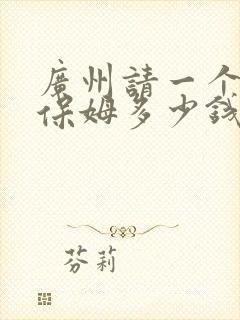 廣州請一个
保姆多少钱
芬莉